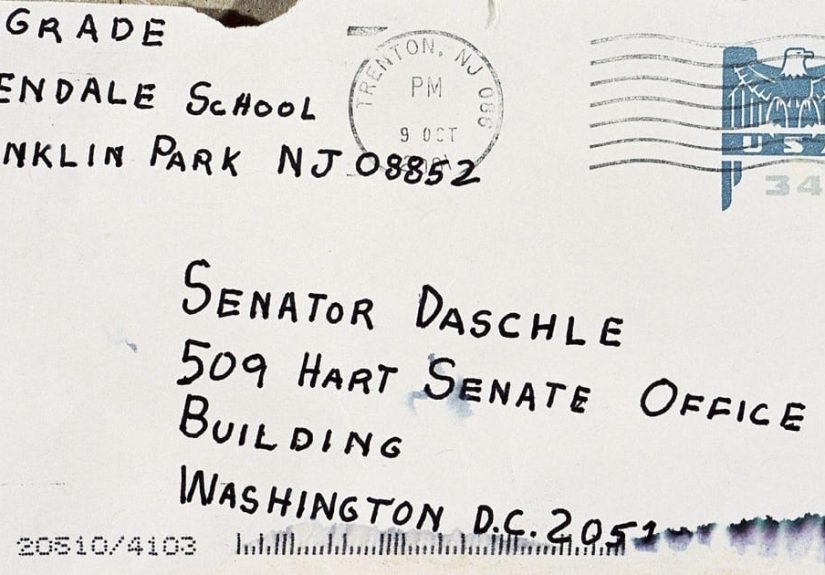 GRADE
ENDALE SCHOOL
NKLIN PARK NJ 08852
TRENTON, NJ 086
PM
9 OCT
USA
34
SENATOR DASCHLE
509 HART SENATE OFFICE
BUILDING
WASHINGTON D.C. 2051
20510/4103